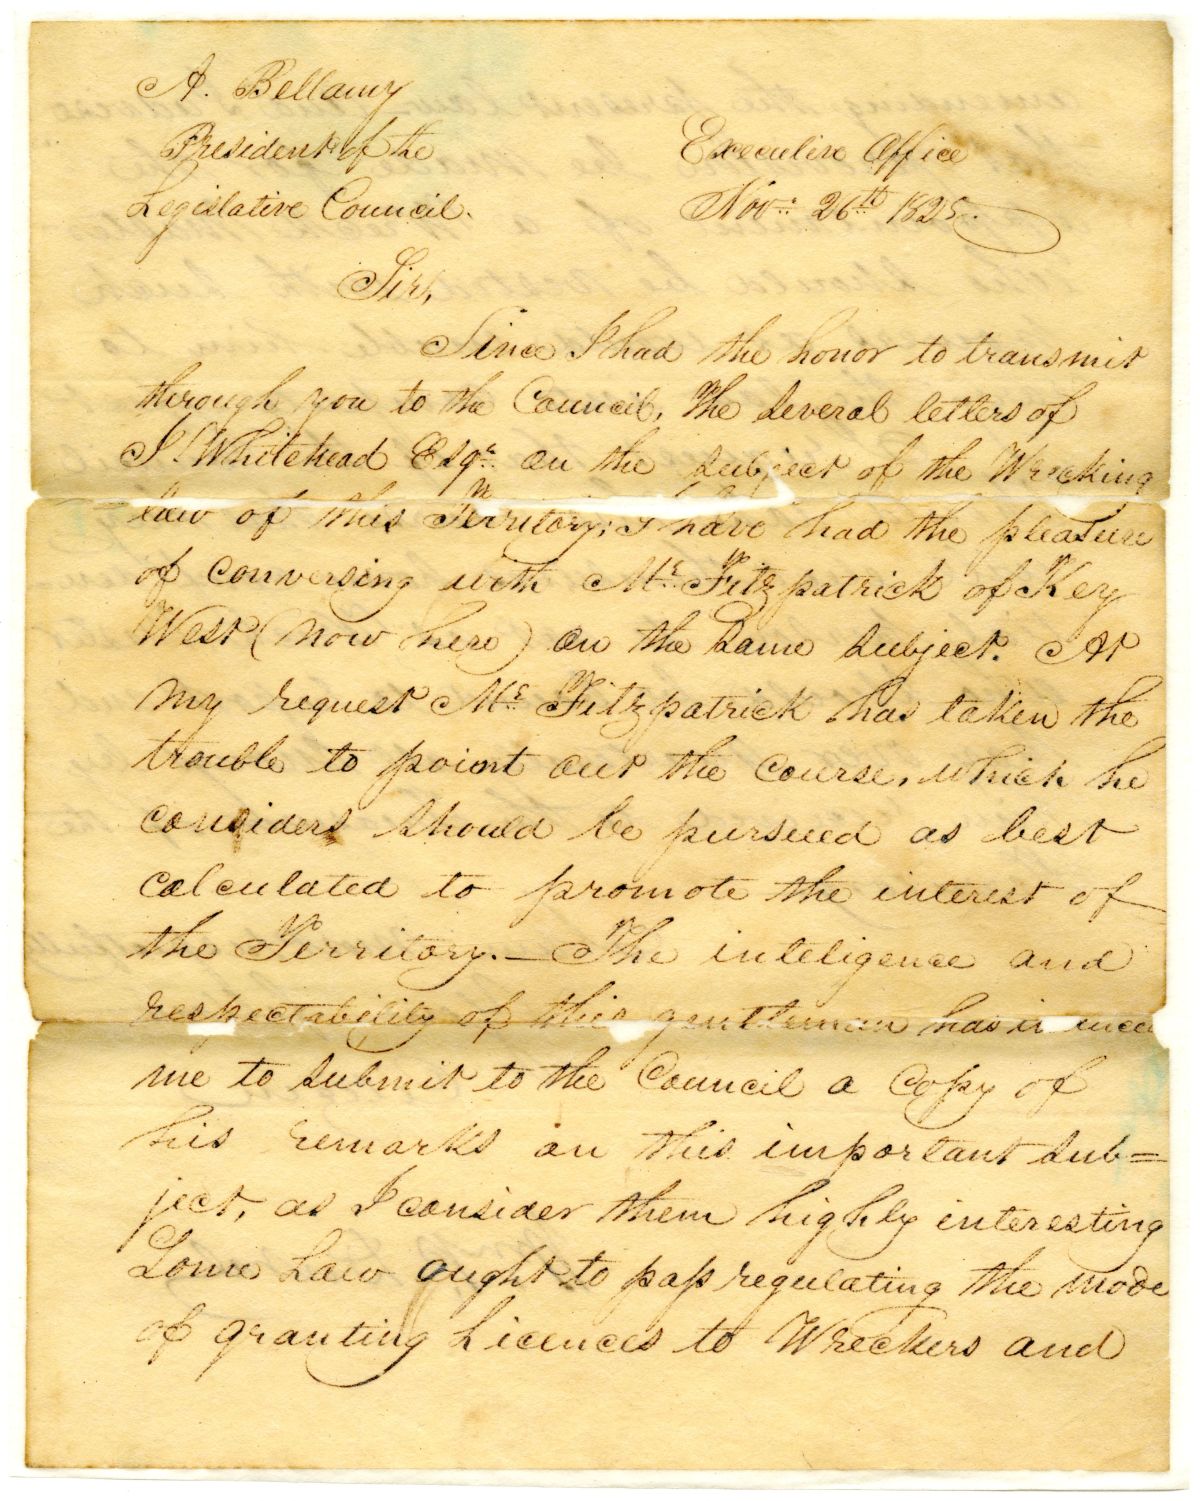 A. Bellamy
President of the
Legislative Council.
Executive Office
Nov: 26th 1825.
Sir,
Since I had the honor to transmit
through you to the Council, The several letters of
J. Whitehead Esqr. on the subject of the Wrecking
law of this Territory; I have had the pleasure
of conversing with Mr. Fitzpatrick of Key
West (now here) on the same subject. At
my request Mr. Fitzpatrick has taken the
trouble to point out the course, which he
considers should be pursued as best
calculated to promote the interest of
the Territory.— The inteligence and
respectability of this gentleman has
me to submit to the Council a Copy of
his remarks on this important sub=
ject, as I consider them highly interesting
Some Law ought to pass regulating the mode
of granting Licences to Wreckers and